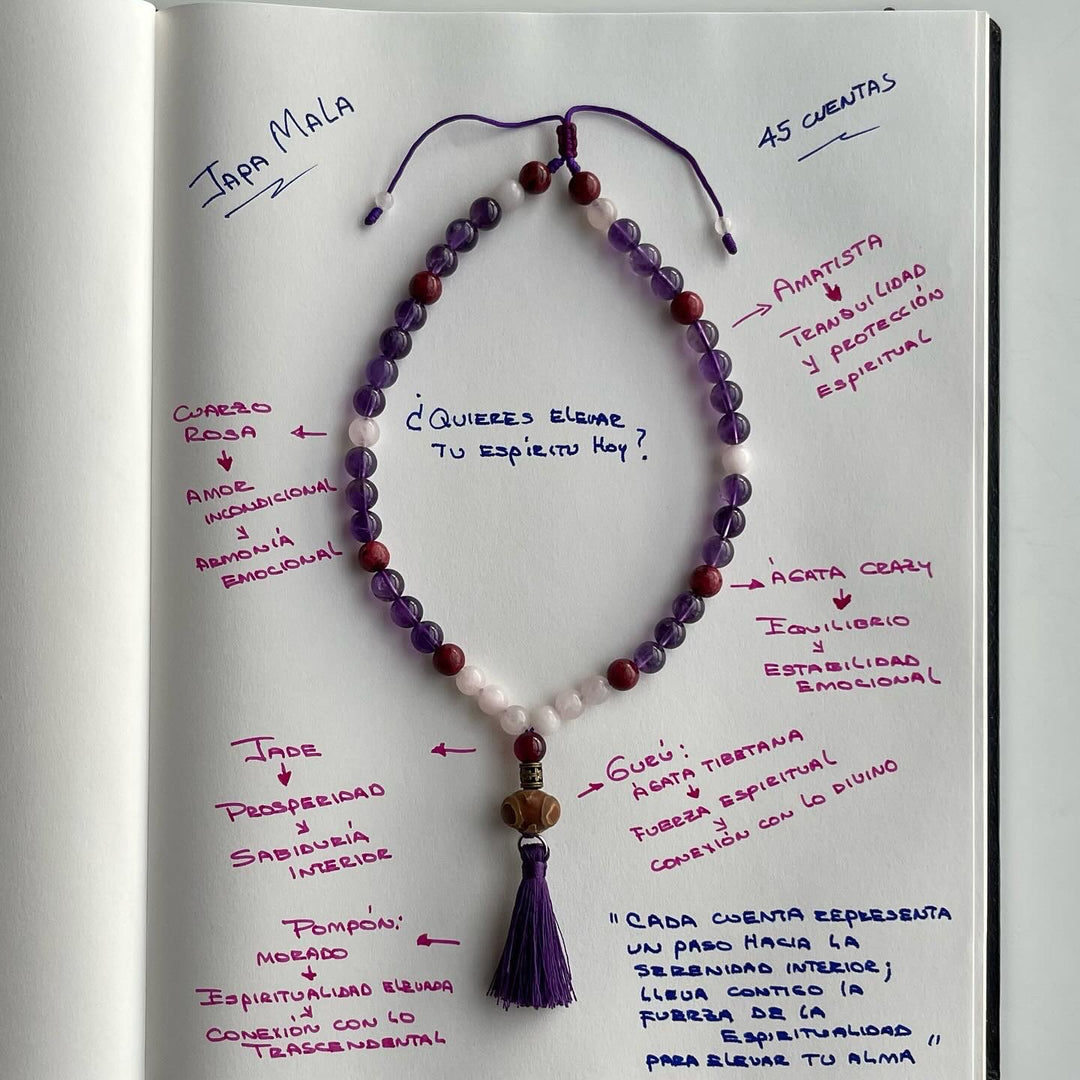 JAPA MALA
45 CUENTAS
AMATISTA
TRANQUILIDAD
Y PROTECCIÓN
ESPIRITUAL
¿QUIERES ELEVAR
TU ESPÍRITU HOY?
CUARZO
ROSA
AMOR
INCONDICIONAL
Y
ARMONÍA
EMOCIONAL
ÁGATA CRAZY
EQUILIBRIO
Y
ESTABILIDAD
EMOCIONAL
JADE
PROSPERIDAD
Y
SABIDURÍA
INTERIOR
GURÚ:
ÁGATA TIBETANA
FUERZA ESPIRITUAL
Y
CONEXIÓN CON LO DIVINO
POMPÓN:
MORADO
ESPIRITUALIDAD ELEVADA
Y
CONEXIÓN CON LO
TRASCENDENTAL
"CADA CUENTA REPRESENTA
UN PASO HACIA LA
SERENIDAD INTERIOR;
LLEVA CONTIGO LA
FUERZA DE LA
ESPIRITUALIDAD
PARA ELEVAR TU ALMA"